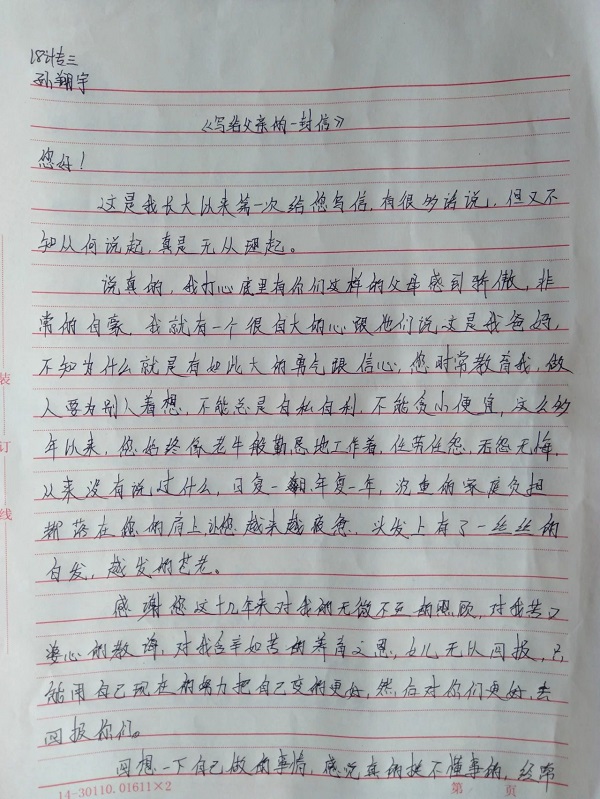 18计专三
孙翔宇
《写给父亲的一封信》
您好！
这是我长大以来第一次给您写信,有很多话说,但又不
知从何说起,真是无从理起。
说真的,我打心底里有你们这样的父母感到骄傲,非
常的自豪,我就有一个很自大的心跟他们说这是我爸妈,
不知为什么就是有如此大的勇气跟信心,您时常教育我,做
人要为别人着想,不能总是自私自利,不能贪小便宜,这么多
年以来,您始终像老牛般勤恳地工作着,任劳任怨,无怨无悔,
从来没有说过什么,日复一日,年复一年,沉重的家庭负担
都落在您的肩上,让您越来越疲惫,头发上有了一丝丝的
白发,越发的苍老。
感谢您这十几年来对我的无微不至的照顾,对我苦口
婆心的教诲,对我含辛如苦的养育之恩,女儿无以回报,只
能用自己现在的努力把自己变的更好,然后对你们更好,去
回报你们。
回想一下自己做的事情,感觉真的挺不懂事的,经常
装
订
线
14-30110.01611×2
第 页